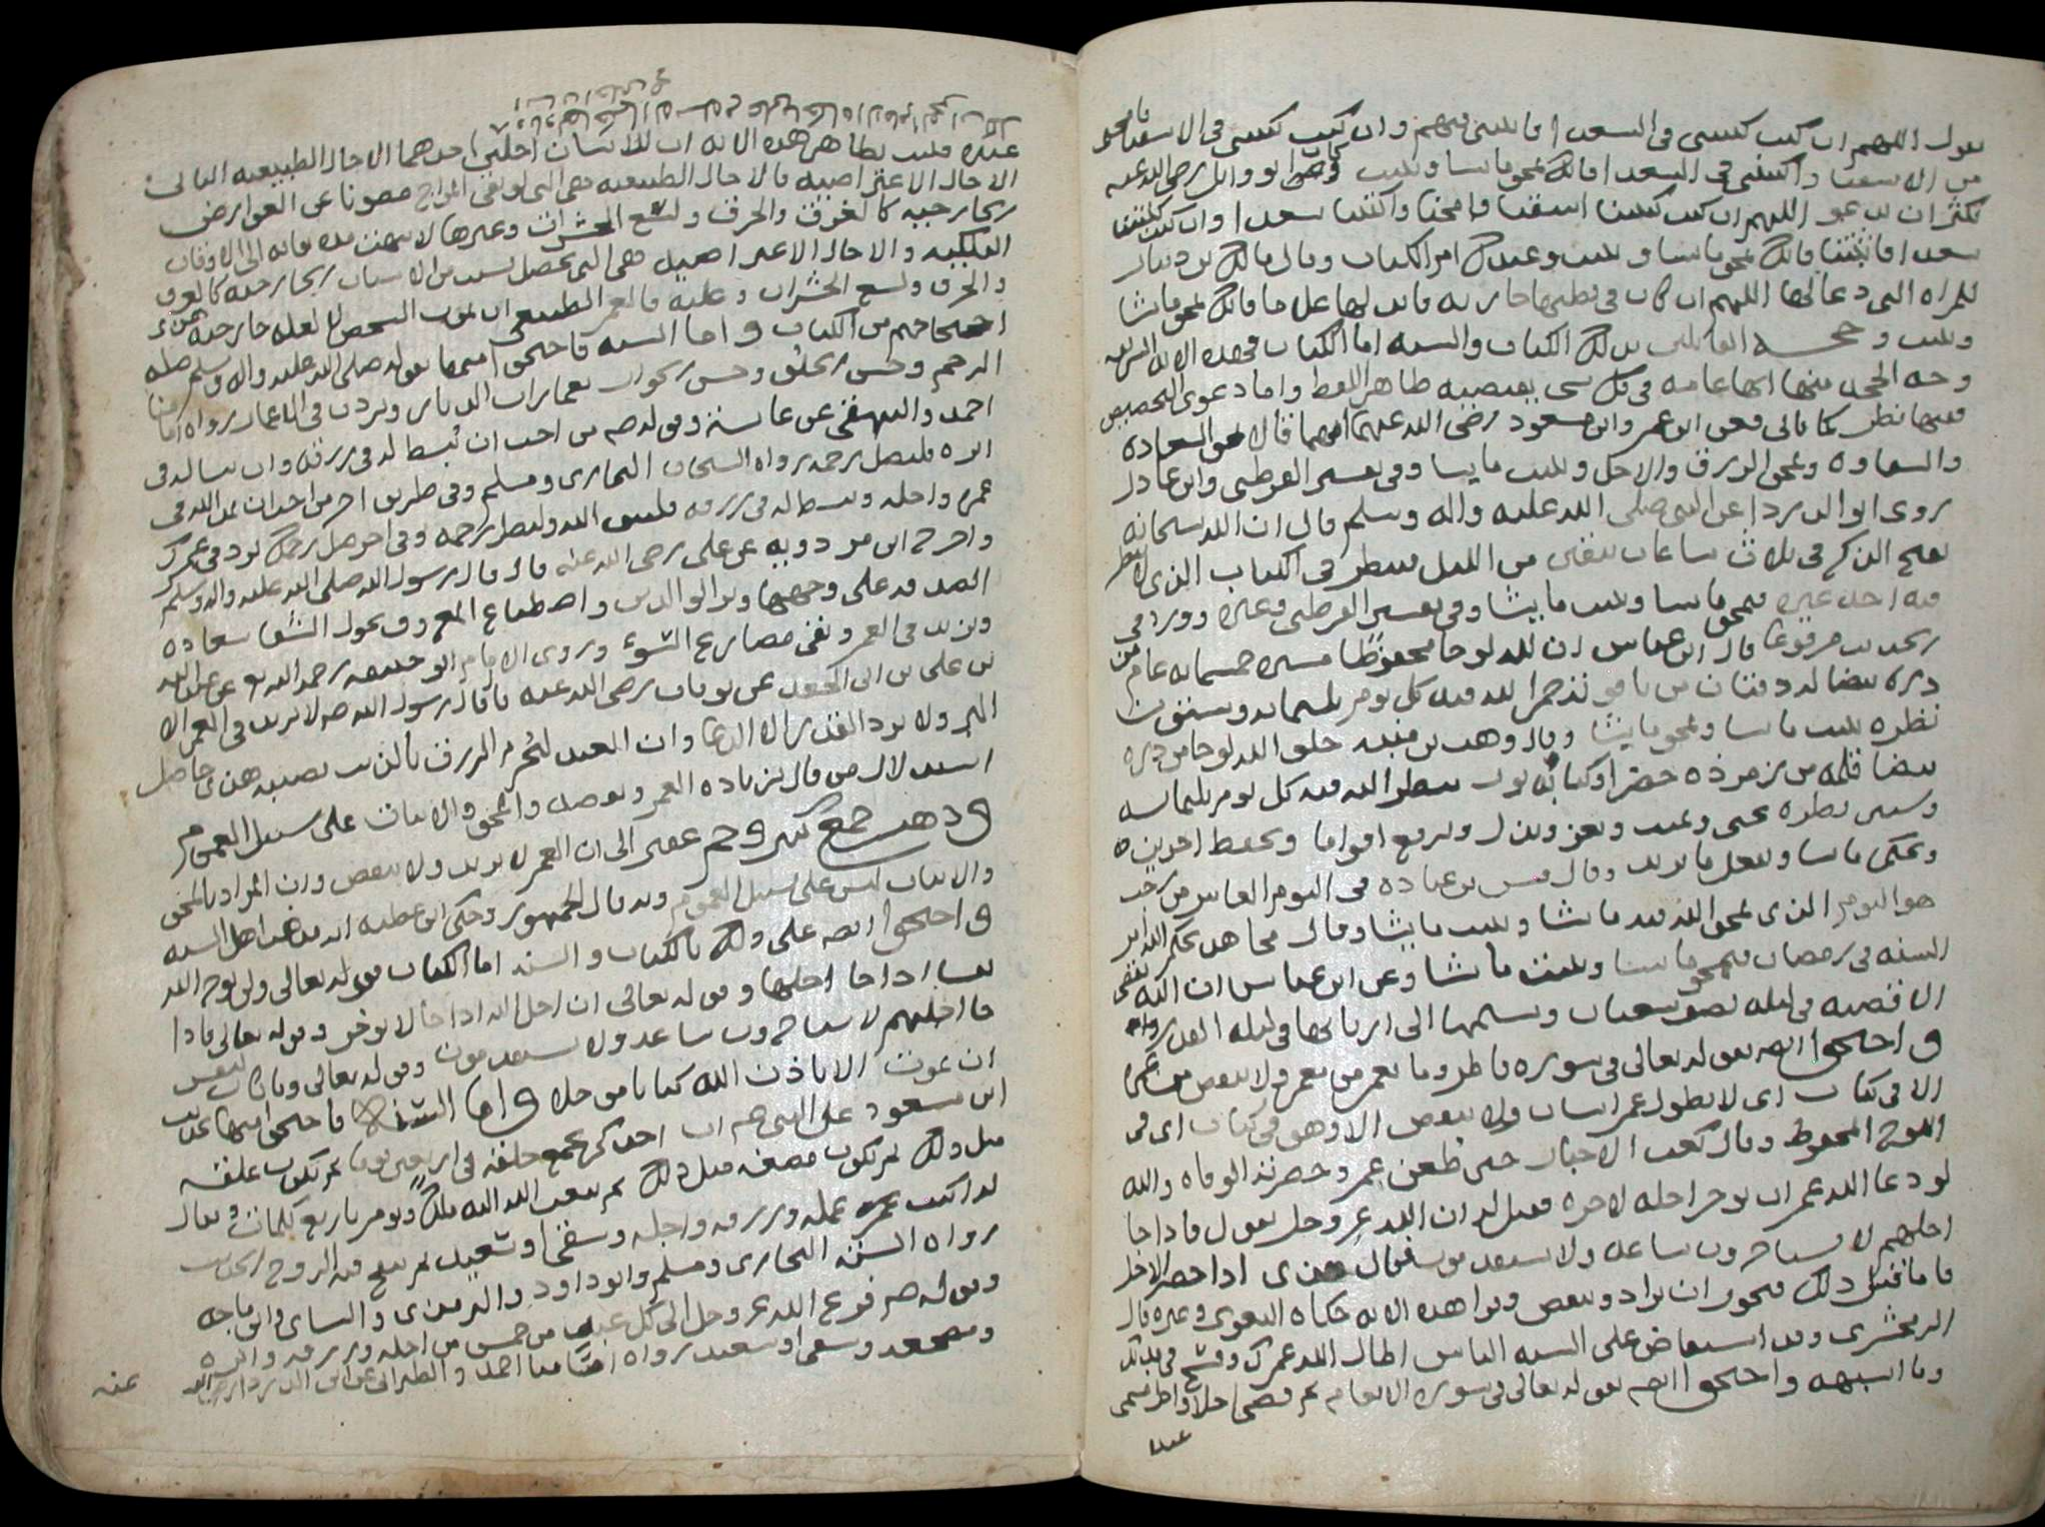 يقول اللهم ان كنت كتبتني في السعدا فاثبتني فيهم وان كنت كتبتني في الاشقيا فامحني
من الاشقيا واكتبني في السعدا فانك تمحو ما تشا وتثبت وكان ابو وايل رضي الله عنه
يكثر ان يدعو اللهم ان كنت كتبتنا اشقيا فامحنا واكتبنا سعدا وان كنت كتبتنا
سعدا فاثبتنا فانك تمحو ما تشا وتثبت وعندك ام الكتاب وقال مالك بن دينار
للمراه التي دعا لها اللهم ان كان في بطنها جاريه فابدلها غلاما فانك تمحو ما تشا
وتثبت وحجه القايلين بذلك الكتاب والسنه اما الكتاب فهذه الايه الشريفه
وجه الحجه منها انها عامه في كل شي يقتضيه ظاهر اللفظ واما دعوى التخصيص
ففيها نظر كما ياتي فعن ابن عمر وابن مسعود رضي الله عنهما انهما قالا يمحو السعاده
والشقاوه ويمحو الرزق والاجل ويثبت ما يشا وفي تفسير القرطبي وابن عادل
روى ابو الدردا عن النبي صلى الله عليه واله وسلم قال ان الله سبحانه
يفتح الذكر في ثلاث ساعات يبقين من الليل فينظر في الكتاب الذي لا ينظر
فيه احد غيره فيمحو ما يشا ويثبت ما يشا وفي تفسير القرطبي وغيره وورد في
الحديث مرفوعا قال ابن عباس ان لله لوحا محفوظا مسيره خمسمايه عام من
دره بيضا له دفتان من ياقوتة حمرا لله فيه كل يوم ثلثمايه وستون
نظره يثبت ما يشا ويمحو ما يشا وقال وهب بن منبه خلق الله لوحا من دره
بيضا قلمه من زمرذه خضرا وكتابه نور ينظر الله فيه كل يوم ثلثمايه
وستين نظره يحيي ويميت ويعز ويذل ويرفع اقواما ويخفض اخرين
ويحكم ما يشا ويفعل ما يريد وقال قيس بن عباده في اليوم العاشر من رجب
هو اليوم الذي يمحو الله فيه ما يشا ويثبت ما يشا وقال مجاهد يحكم الله امر
السنه في رمضان فيمحو ما يشا ويثبت ما يشا وعن ابن عباس ان الله يقضي
الاقضيه في ليله نصف شعبان ويسلمها الى اربابها في ليله القدر
واحتجوا ايضا بقوله تعالى في سوره فاطر وما يعمر من معمر ولا ينقص من عمره
الا في كتاب اي لا يطول عمر انسان ولا ينقص الا وهو في كتاب اي في
اللوح المحفوظ وقال كعب الاحبار حين طعن عمر وحضرته الوفاه والله
لو دعا الله عمر ان يوخر اجله لاخره فقيل له ان الله عز وجل يقول فاذا جا
اجلهم لا يستاخرون ساعه ولا يستقدمون فقال هذا اذا حضر الاجل
فاما قبل ذلك فيجوز ان يزاد وينقص وقرا هذه الايه حكاه البغوي وغيره قال
الزمخشري وقد استفاض على السنه الناس اطال الله عمرك وفسح في مدتك
وما اشبهه واحتجوا ايضا بقوله تعالى في سوره الانعام ثم قضى اجلا واجل مسمى
عنده
عنده فثبت بظاهر هذه الايه ان للانسان اجلين احدهما الاجال الطبيعيه الثاني
الاجال الاعتراضيه فالاجال الطبيعيه هي التي لو بقي المزاج مصونا عن العوارض
الخارجيه كالغرق والحرق ولسع الحشرات وغيرها لانتهت مده بقايه الى الاوقات
الفلكيه والاجال الاعتراضيه هي التي تحصل بسبب من الاسباب الخارجيه كالغرق
والحرق ولسع الحشرات وعليه فالعمر الطبيعي ان يموت الشخص لا لعله خارجيه
احتجاجهم من الكتاب واما السنه فاحتجوا منها بقوله صلى الله عليه واله وسلم صله
الرحم وحسن الخلق وحسن الجوار يعمران الديار ويزدن في الاعمار رواه
احمد والبيهقي عن عايشه وقوله صم من احب ان يبسط له في رزقه وان ينسا له في
اثره فليصل رحمه رواه الشيخان البخاري ومسلم وفي طريق اخر من احب ان يمد الله في
عمره واجله ويبسط له في رزقه فليتق الله وليصل رحمه
واخرج ابن مردويه عن علي رضي الله عنه قال قال رسول الله صلى الله عليه واله وسلم
الصدقه على وجهها وبر الوالدين واصطناع المعروف يحول الشقا سعاده
ويزيد في العمر ويقي مصارع السوء وروى الامام ابو حنيفه رحمه الله تع عن عبد الله
بن علي بن ابي الجعد عن ثوبان رضي الله عنه قال قال رسول الله صم لا يزيد في العمر الا
البر ولا يرد القدر الا الدعا وان العبد ليحرم الرزق بالذنب يصيبه هذا حاصل
استدلال من قال بزياده العمر ونقصه والمحو والاثبات على سبيل العموم
وذهب جمع كثير وجم غفير الى ان العمر لا يزيد ولا ينقص وان المراد بالمحو
والاثبات ليس على سبيل العموم وبه قال الجمهور وحكى ابن عطيه انه مذهب اهل السنه
واحتجوا ايضا على ذلك بالكتاب والسنه اما الكتاب فقوله تعالى ولن يوخر الله
نفسا اذا جا اجلها وقوله تعالى ان اجل الله اذا جا لا يوخر وقوله تعالى فاذا
جا اجلهم لا يستاخرون ساعه ولا يستقدمون وقوله تعالى وما كان لنفس
ان تموت الا باذن الله كتابا موجلا واما السنه فاحتجوا منها بحديث
ابن مسعود عن النبي صم ان احدكم يجمع خلقه في اربعين يوما ثم يكون علقه
مثل ذلك ثم يكون مضغه مثل ذلك ثم يبعث الله اليه ملكا ويومر باربع كلمات ويقال
له اكتب عمله ورزقه واجله وشقي او سعيد ثم ينفخ فيه الروح الحديث
رواه السته البخاري ومسلم وابو داود والترمذي والنساي وابن ماجه
وبقوله صم فرغ الله عز وجل الى كل عبد من خمس من اجله ورزقه واثره
ومضجعه وشقي او سعيد رواه احمد والطبراني عن ابي الدردا رضي الله
عنه